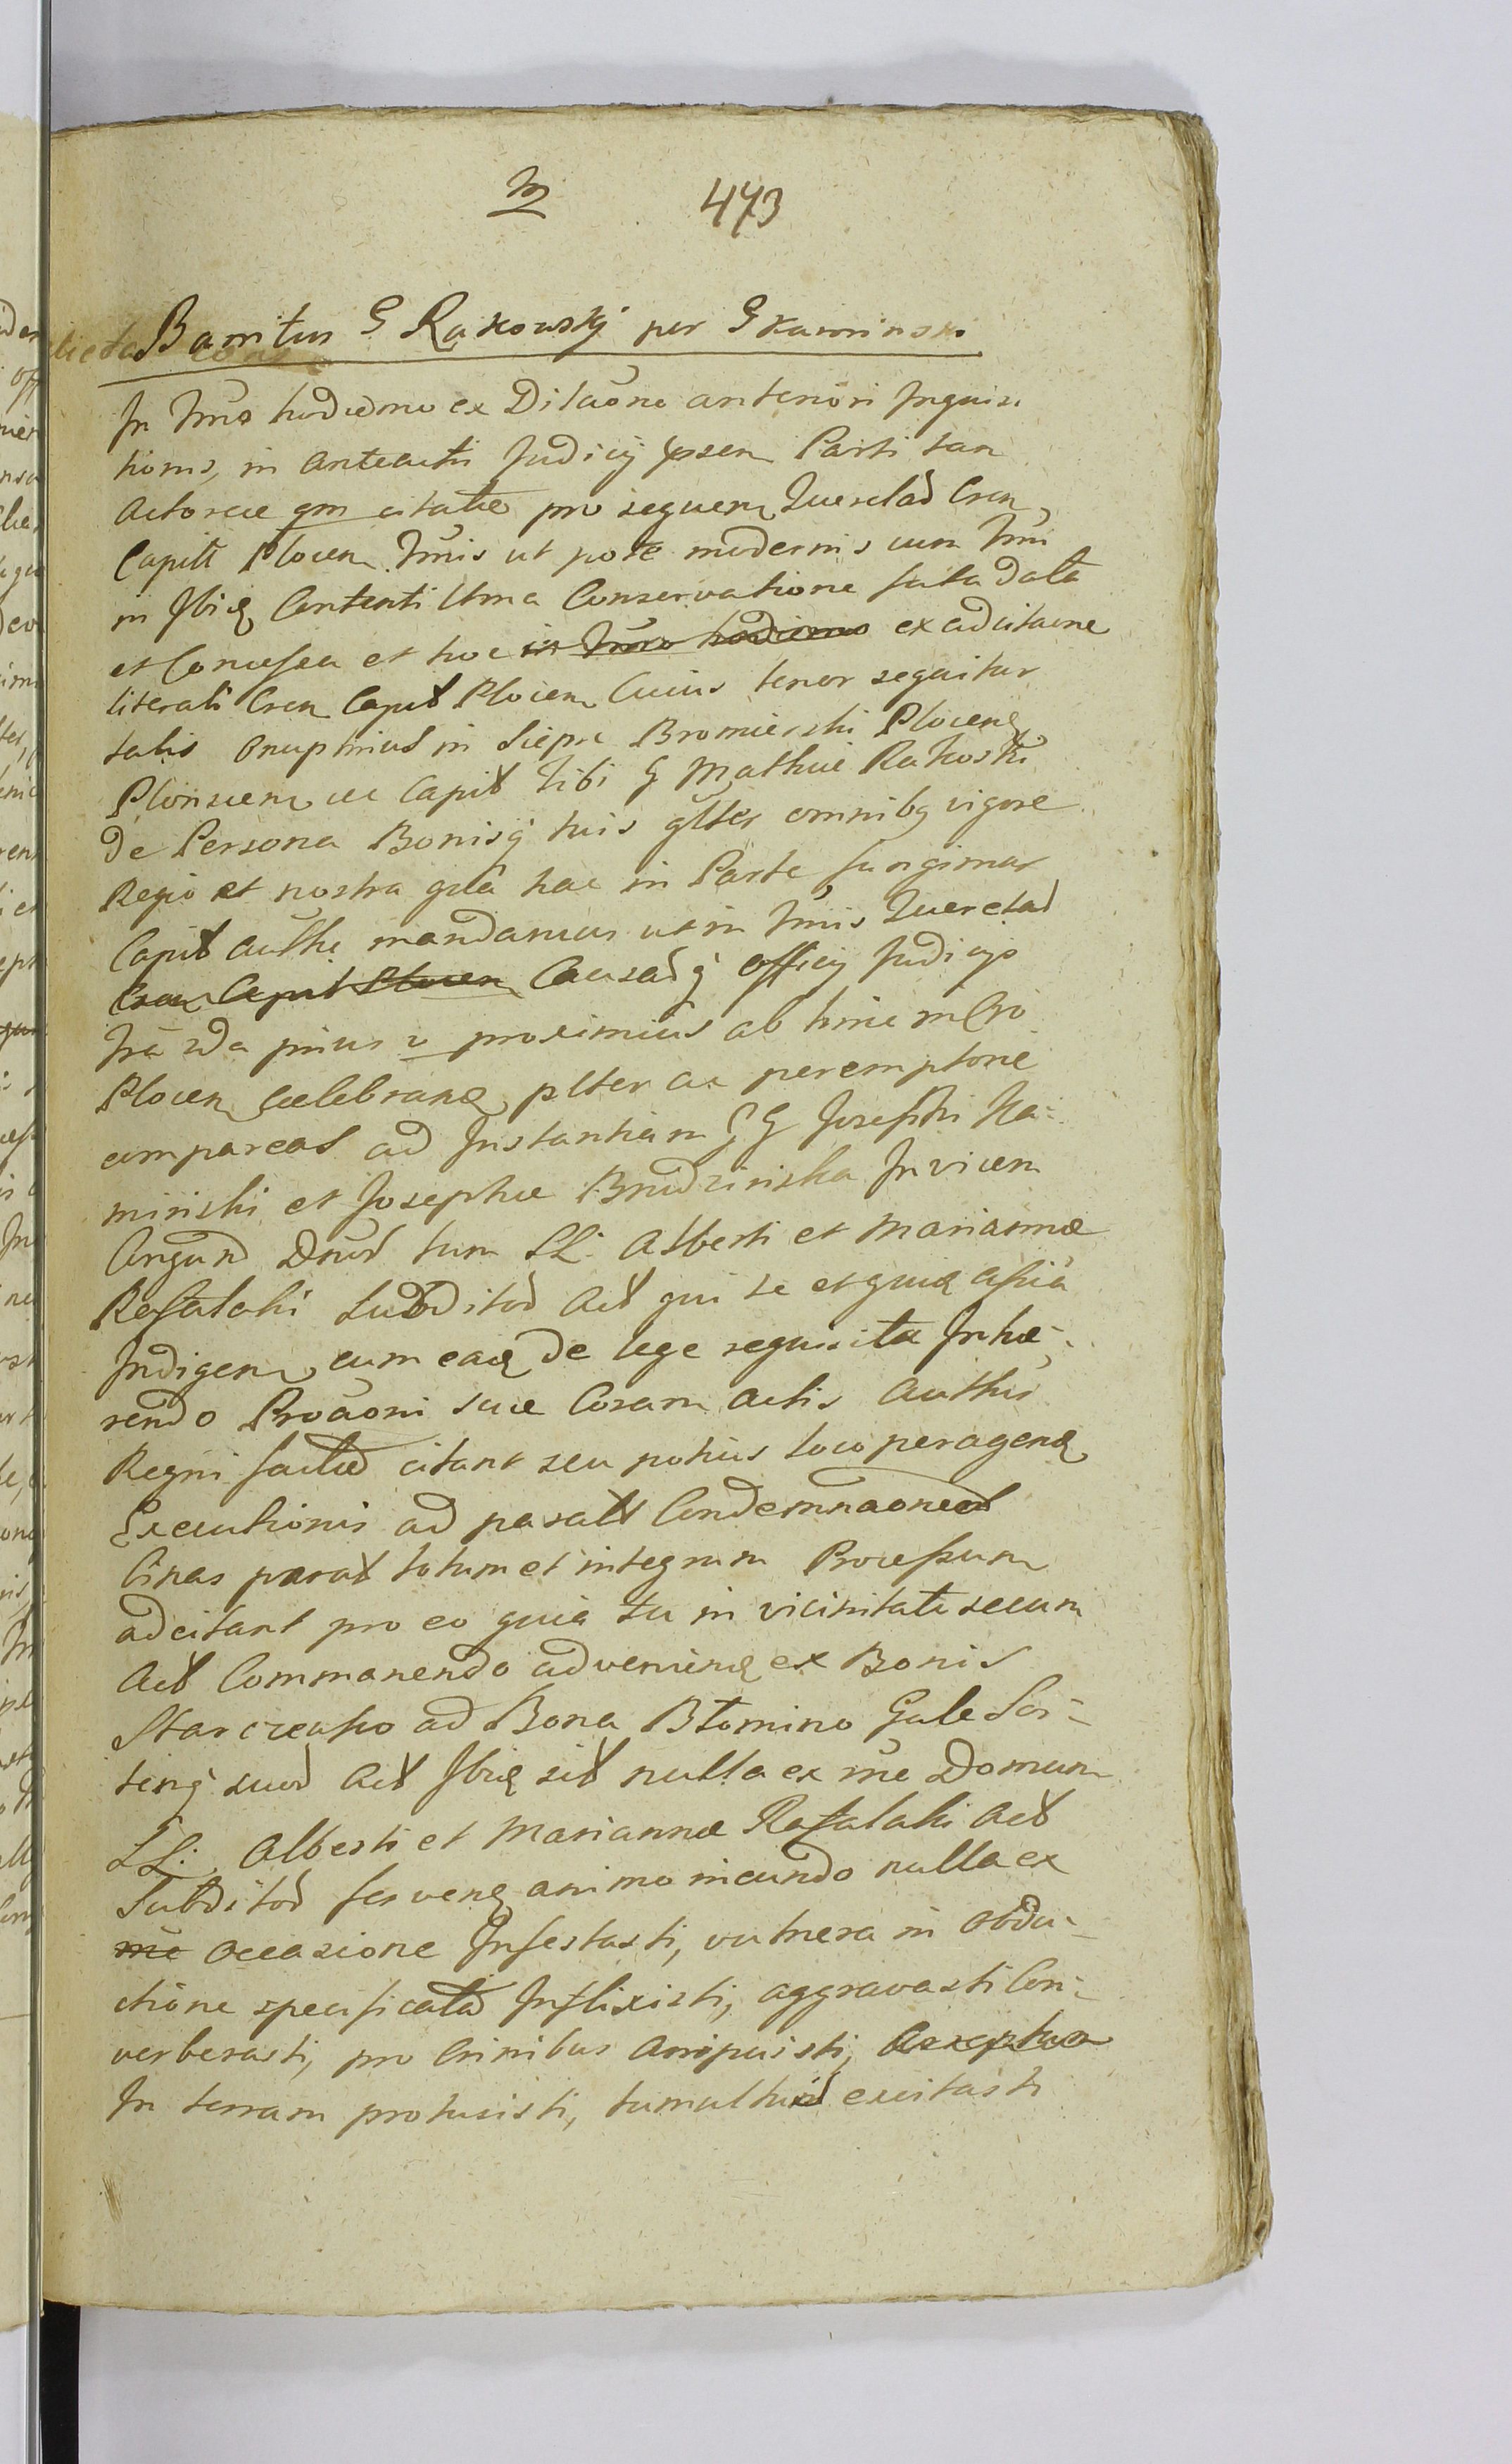 m 473
Banitus G Rakowskj per G Kaminski
In Tmō hodierno ex Dilāōne anteriori Inquisi
tionis, in anteacti Judicij psen Parti tan
Actoreae qm citatae pro sequen Querelad Cren
Capitt Plocen Tmis ut pote modernis cum Tmi
in Ibiq Contenti Utma Conservatione facta data
et Concessa et hoc in Tmo hodierno ex adcitaone
literali Cren Capit Plocen Cuius tenor sequitur
talis Onuphrius in Siepre Bromierski Plocenq
Plonscen ce Capit Tibi G Mathiae Rakoski
De Persona Bonisq tuis glter omnibq vigore
Regio et nostra qua hac in Parte fungimur
Capit Autthe mandamus ut in Tmis Querelad
Cren Capit Plocen Causadq Officij Judicijs
Fra 2da prius v proximius ab hinc in Cro
Plocen Celebranq plter ac peremptorie
compareas ad Instantiam GG Josephi Ka-
minski et Josephae Brudzinska Invicem
Congund Dnōd tum LL. Alberti et Mariannae
Rafalski Subditod Act qui te et quiq Assia
Indigen cum eaq de lege requisita Inhae-
rendo Proāōni suae Coram Actis Autthis
Regni factae citant seu potius loco peragenq
Executionis ad parats Condemnaoned
Cinas parat totum et integrum Processum
adcitant pro eo quia tu in vicinitate secum
Act Commanendo advenienq ex Bonis
Starczewo ad Bona Btomino Gule Sor-
tenq suod Act Ibiq sit nulla ex me Domum
LL. Alberti et Mariannae Rafalski Act
Subditod fervenq animo incundo nulla ex
me occasione Infestasti, vulnera in Obdu-
ctione specificata Inflixisti, aggravasti Con-
verberasti, pro Crinibus Arripuisti,
In terram protusisti, tumultud excitasti